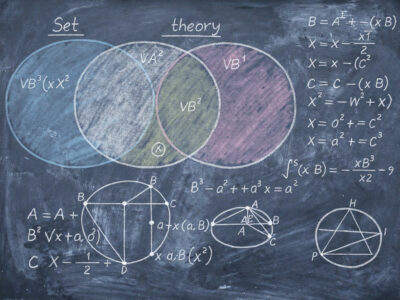 Set theory
VB³(x X²
VA²
VB¹
VB²
X
B = A^E + -(x B)
X = X - x1/2
X = x - (C²
C = C - (x B)
X² = -W² + X)
X = o² + = C²
X = a² + = C³
∫^S(x B) = - xB³/x2 - 9
B³ - a² + + a³ x = a²
A = A +
B² √x + a, 6)
C X - 1/2 +
B
B
C
D
a + x (a, B)
x a, B (x²)
A
B
A
C
H
I
P